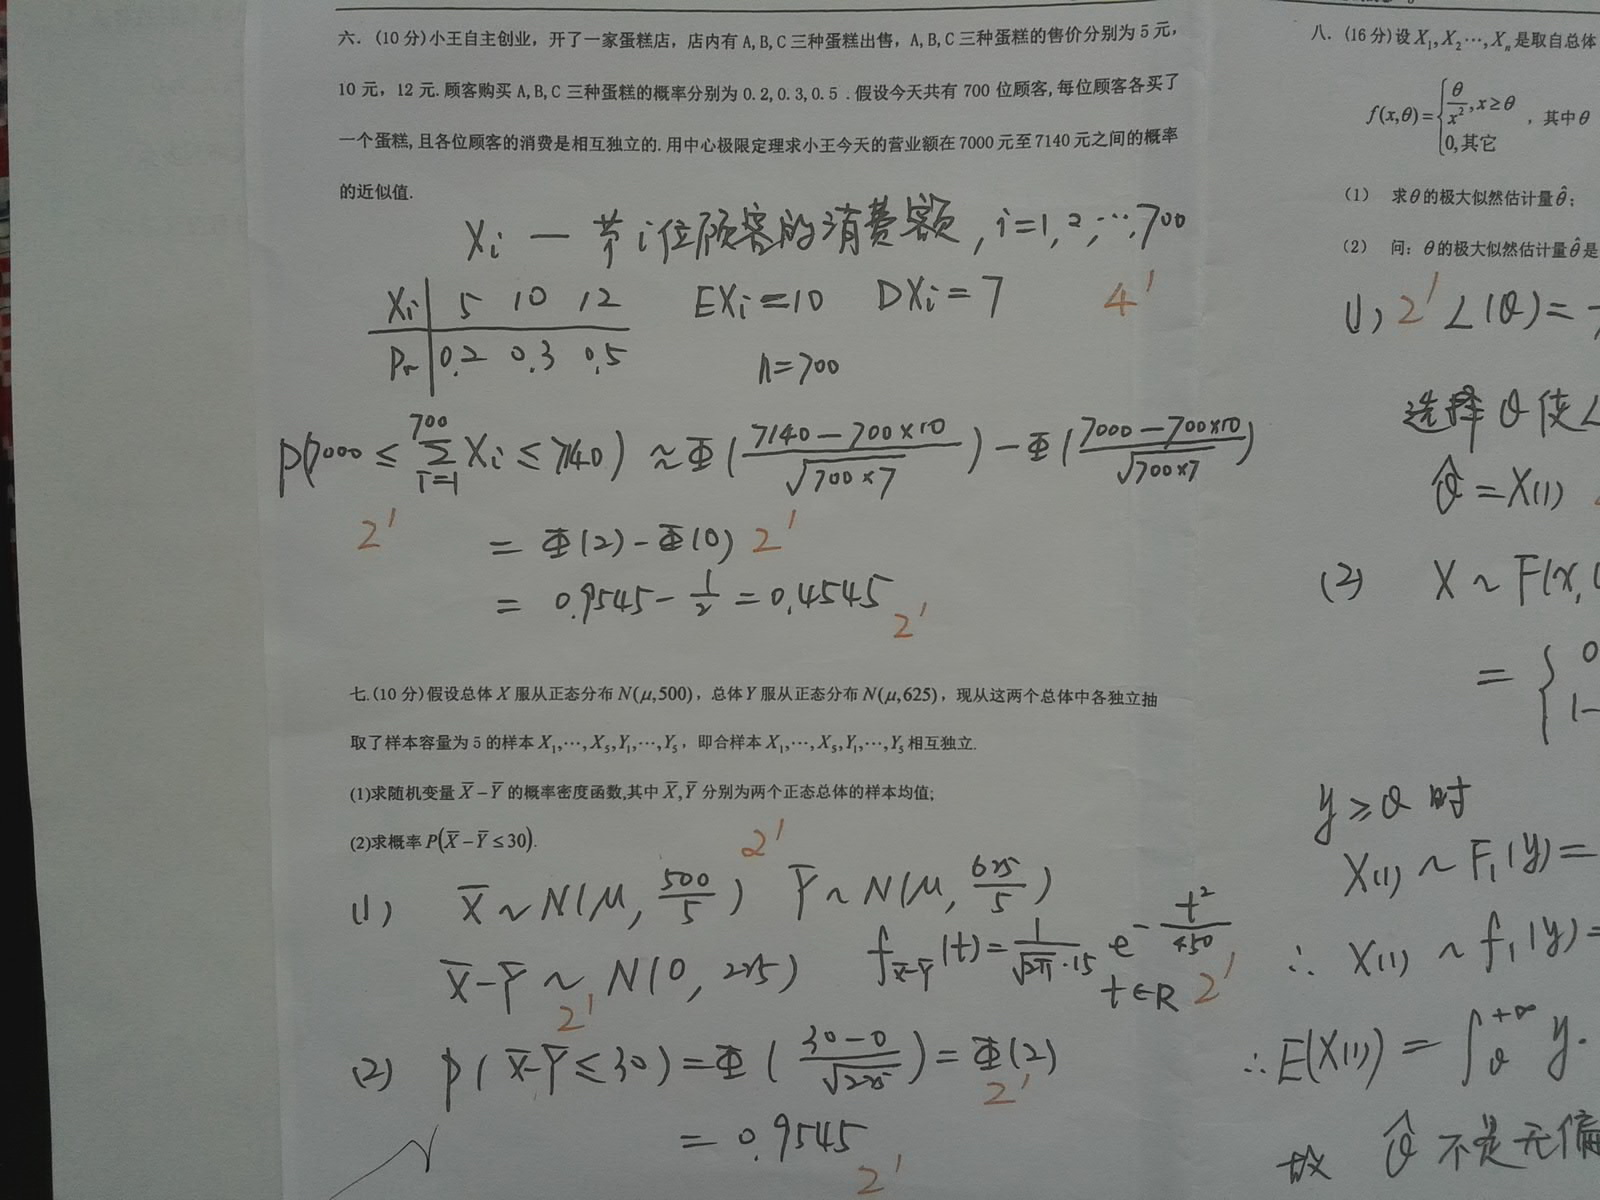 六. (10分)小王自主创业，开了一家蛋糕店，店内有 A,B,C 三种蛋糕出售，A,B,C 三种蛋糕的售价分别为 5 元，
10 元，12 元.顾客购买 A,B,C 三种蛋糕的概率分别为 0.2,0.3,0.5 .假设今天共有 700 位顾客,每位顾客各买了
一个蛋糕,且各位顾客的消费是相互独立的.用中心极限定理求小王今天的营业额在 7000 元至 7140 元之间的概率
的近似值.
Xi — 第i位顾客的消费额, i=1,2,…,700
Xi | 5 10 12 EXi=10 DXi=7 4'
Pr | 0.2 0.3 0.5 n=700
P(7000 ≤ ∑_{i=1}^{700} Xi ≤ 7140) ≈ Φ((7140-700×10)/√(700×7)) - Φ((7000-700×10)/√(700×7))
2' = Φ(2)-Φ(0) 2'
= 0.9545 - 1/2 = 0.4545 2'
七.(10分)假设总体 X 服从正态分布 N(μ,500)，总体 Y 服从正态分布 N(μ,625)，现从这两个总体中各独立抽
取了样本容量为 5 的样本 X₁,⋯,X₅,Y₁,⋯,Y₅，即合样本 X₁,⋯,X₅,Y₁,⋯,Y₅ 相互独立.
(1)求随机变量 X̄-Ȳ 的概率密度函数,其中 X̄,Ȳ 分别为两个正态总体的样本均值;
(2)求概率 P(X̄-Ȳ≤30).
2'
(1) X̄~N(μ, 500/5) Ȳ~N(μ, 625/5)
X̄-Ȳ ~ N(0, 225) f_{X̄-Ȳ}(t)= 1/(√2π·15) e^{-t²/450}
2' t∈R 2'
(2) P(X̄-Ȳ≤30)=Φ((30-0)/√225)=Φ(2)
2'
= 0.9545
2'
八. (16分)设 X₁,X₂⋯,Xₙ 是取自总体
f(x,θ)={θ/x², x≥θ
0,其它 ，其中 θ
(1) 求 θ 的极大似然估计量 θ̂;
(2) 问: θ 的极大似然估计量 θ̂ 是
(1) 2' L(θ)=
选择 θ 使 L
θ̂ = X(1)
(2) X ~ F(x,
= { 0
1-
y≥θ 时
X(1) ~ F₁(y)=
∴ X(1) ~ f₁(y)=
∴E(X(1)) = ∫_θ^{+∞} y·
故 θ̂ 不是无偏